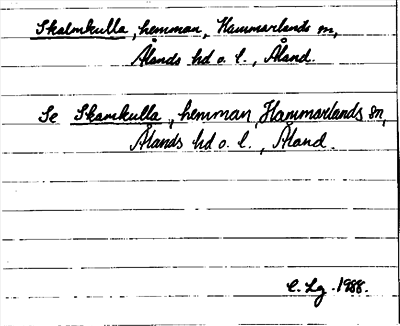 Skalmkulla, hemman, Hammarlands sn,
Ålands hd o. l., Åland.
Se Skarnkulla, hemman, Hammarlands sn,
Ålands hd o. l., Åland.
C. Lg. 1988.